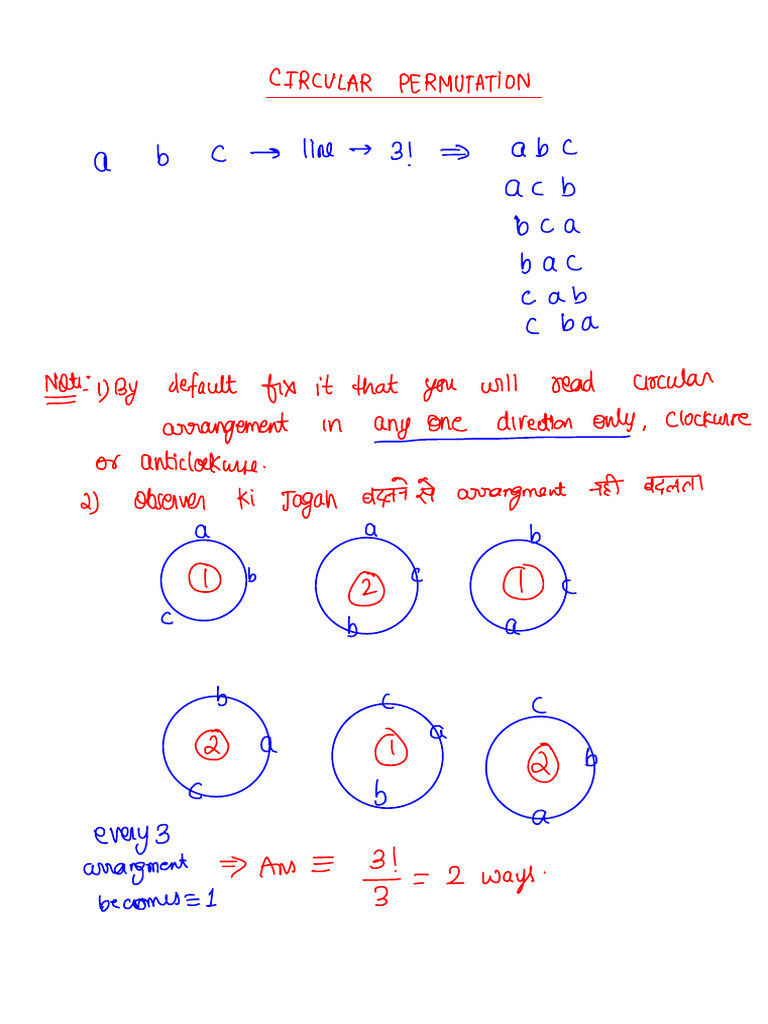 CIRCULAR PERMUTATION
a b c → line → 3! ⇒ a b c
a c b
b c a
b a c
c a b
c b a
Note:- 1) By default fix it that you will read circular
arrangement in any one direction only, Clockwise
or anticlockwise.
2) Observer ki Jagah बदलने से arrangment नही बदलता
a a b
1 b 2 c 1 c
c b a
b c c
2 a 1 a 2 b
c b a
every 3
arrangment ⇒ Ans ≡ 3!/3 = 2 ways.
becomes ≡ 1